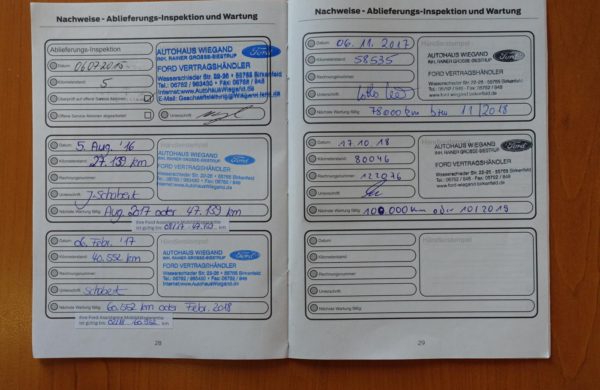 Nachweise - Ablieferungs-Inspektion und Wartung
Ablieferungs-Inspektion
Datum 06.07.2015
Kilometerstand 5
Überprüft auf offene Service Aktionen
Offene Service Aktionen abgearbeitet
Unterschrift
AUTOHAUS WIEGAND
INH. RAINER GROSSE-GEISTRUP
Ford
FORD VERTRAGSHÄNDLER
Wasserschieder Str. 22-26 • 55765 Birkenfeld
Tel.: 06782 / 983430 • Fax: 06782 / 948
Internet: www.AutohausWiegand.de
Datum 5. Aug. '16
Kilometerstand 27.139 km
Rechnungsnummer
Unterschrift J. Schubert
Nächste Wartung fällig Aug. 2017 oder 47.139 km
Händlerstempel
AUTOHAUS WIEGAND
Ford
FORD VERTRAGSHÄNDLER
Wasserschieder Str. 22-26 • 55765 Birkenfeld
Tel.: 06782 / 983430 • Fax 06782 / 948
Internet: www.AutohausWiegand.de
Ihre Ford Assistance Mobilitätsgarantie
ist gültig bis: 08/17 47.139 km
Datum 06. Febr. '17
Kilometerstand 40.552 km
Rechnungsnummer
Unterschrift Schubert
Nächste Wartung fällig 60.552 km oder Febr. 2018
Händlerstempel
AUTOHAUS WIEGAND
Ford
FORD VERTRAGSHÄNDLER
Wasserschieder Str. 22-26 • 55765 Birkenfeld
Tel.: 06782 / 983430 • Fax 06782 / 948
Internet: www.AutohausWiegand.de
Ihre Ford Assistance Mobilitätsgarantie
ist gültig bis: 02/18 60.552 km
28
Nachweise - Ablieferungs-Inspektion und Wartung
Datum 06.11.2017
Kilometerstand 58535
Rechnungsnummer
Unterschrift
Nächste Wartung fällig 78000 km bzw 11/2018
Händlerstempel
AUTOHAUS WIEGAND
Ford
FORD VERTRAGSHÄNDLER
Wasserschieder Str. 22-26 • 55765 Birkenfeld
Datum 17.10.18
Kilometerstand 80046
Rechnungsnummer 122976
Unterschrift
Nächste Wartung fällig 100.000 km oder 10/2019
AUTOHAUS WIEGAND
Ford
FORD VERTRAGSHÄNDLER
Wasserschieder Str. 22-26 • 55765 Birkenfeld
Datum
Kilometerstand
Rechnungsnummer
Unterschrift
Nächste Wartung fällig
Händlerstempel
29